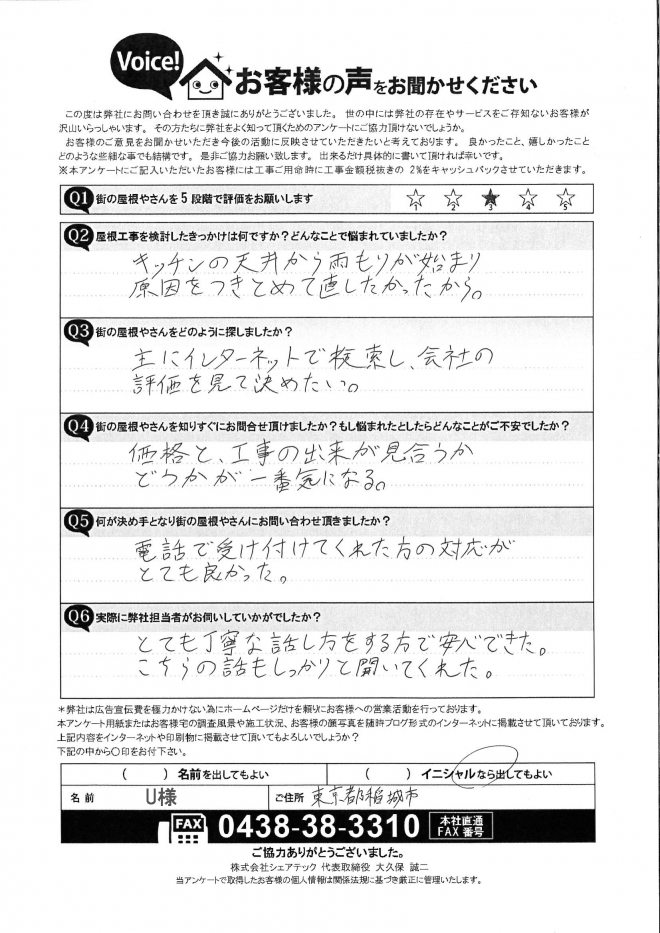 Voice! お客様の声をお聞かせください
この度は弊社にお問い合わせを頂き誠にありがとうございました。 世の中には弊社の存在やサービスをご存知ないお客様が
沢山いらっしゃいます。 その方たちに弊社をよく知って頂くためのアンケートにご協力頂けないでしょうか。
お客様のご意見をお聞かせいただき今後の活動に反映させていただきたいと考えております。 良かったこと、嬉しかったこと
どのような些細な事でも結構です。 是非ご協力お願い致します。 出来るだけ具体的に書いて頂ければ幸いです。
※本アンケートにご記入いただいたお客様には工事ご用命時に工事金額税抜きの 2%をキャッシュバックさせていただきます。
Q1 街の屋根やさんを5段階で評価をお願いします ☆1 ☆2 ★3 ☆4 ☆5
Q2 屋根工事を検討したきっかけは何ですか？どんなことで悩まれていましたか？
キッチンの天井から雨もりが始まり
原因をつきとめて直したかったから。
Q3 街の屋根やさんをどのように探しましたか？
主にインターネットで検索し、会社の
評価を見て決めたい。
Q4 街の屋根やさんを知りすぐにお問合せ頂けましたか？もし悩まれたとしたらどんなことがご不安でしたか？
価格と、工事の出来が見合うか
どうかが一番気になる。
Q5 何が決め手となり街の屋根やさんにお問い合わせ頂きましたか？
電話で受け付けてくれた方の対応が
とても良かった。
Q6 実際に弊社担当者がお伺いしていかがでしたか？
とても丁寧な話し方をする方で安心できた。
こちらの話もしっかりと聞いてくれた。
＊弊社は広告宣伝費を極力かけない為にホームページだけを頼りにお客様への営業活動を行っております。
本アンケート用紙またはお客様宅の調査風景や施工状況、お客様の顔写真を随時ブログ形式のインターネットに掲載させて頂いております。
上記内容をインターネットや印刷物に掲載させて頂いてもよろしいでしょうか？
下記の中から○印をお付下さい。
（　　）名前を出してもよい （　　）イニシャルなら出してもよい
名前 U様 ご住所 東京都稲城市
FAX 0438-38-3310 本社直通 FAX番号
ご協力ありがとうございました。
株式会社シェアテック 代表取締役 大久保 誠二
当アンケートで取得したお客様の個人情報は関係法規に基づき厳正に管理いたします。